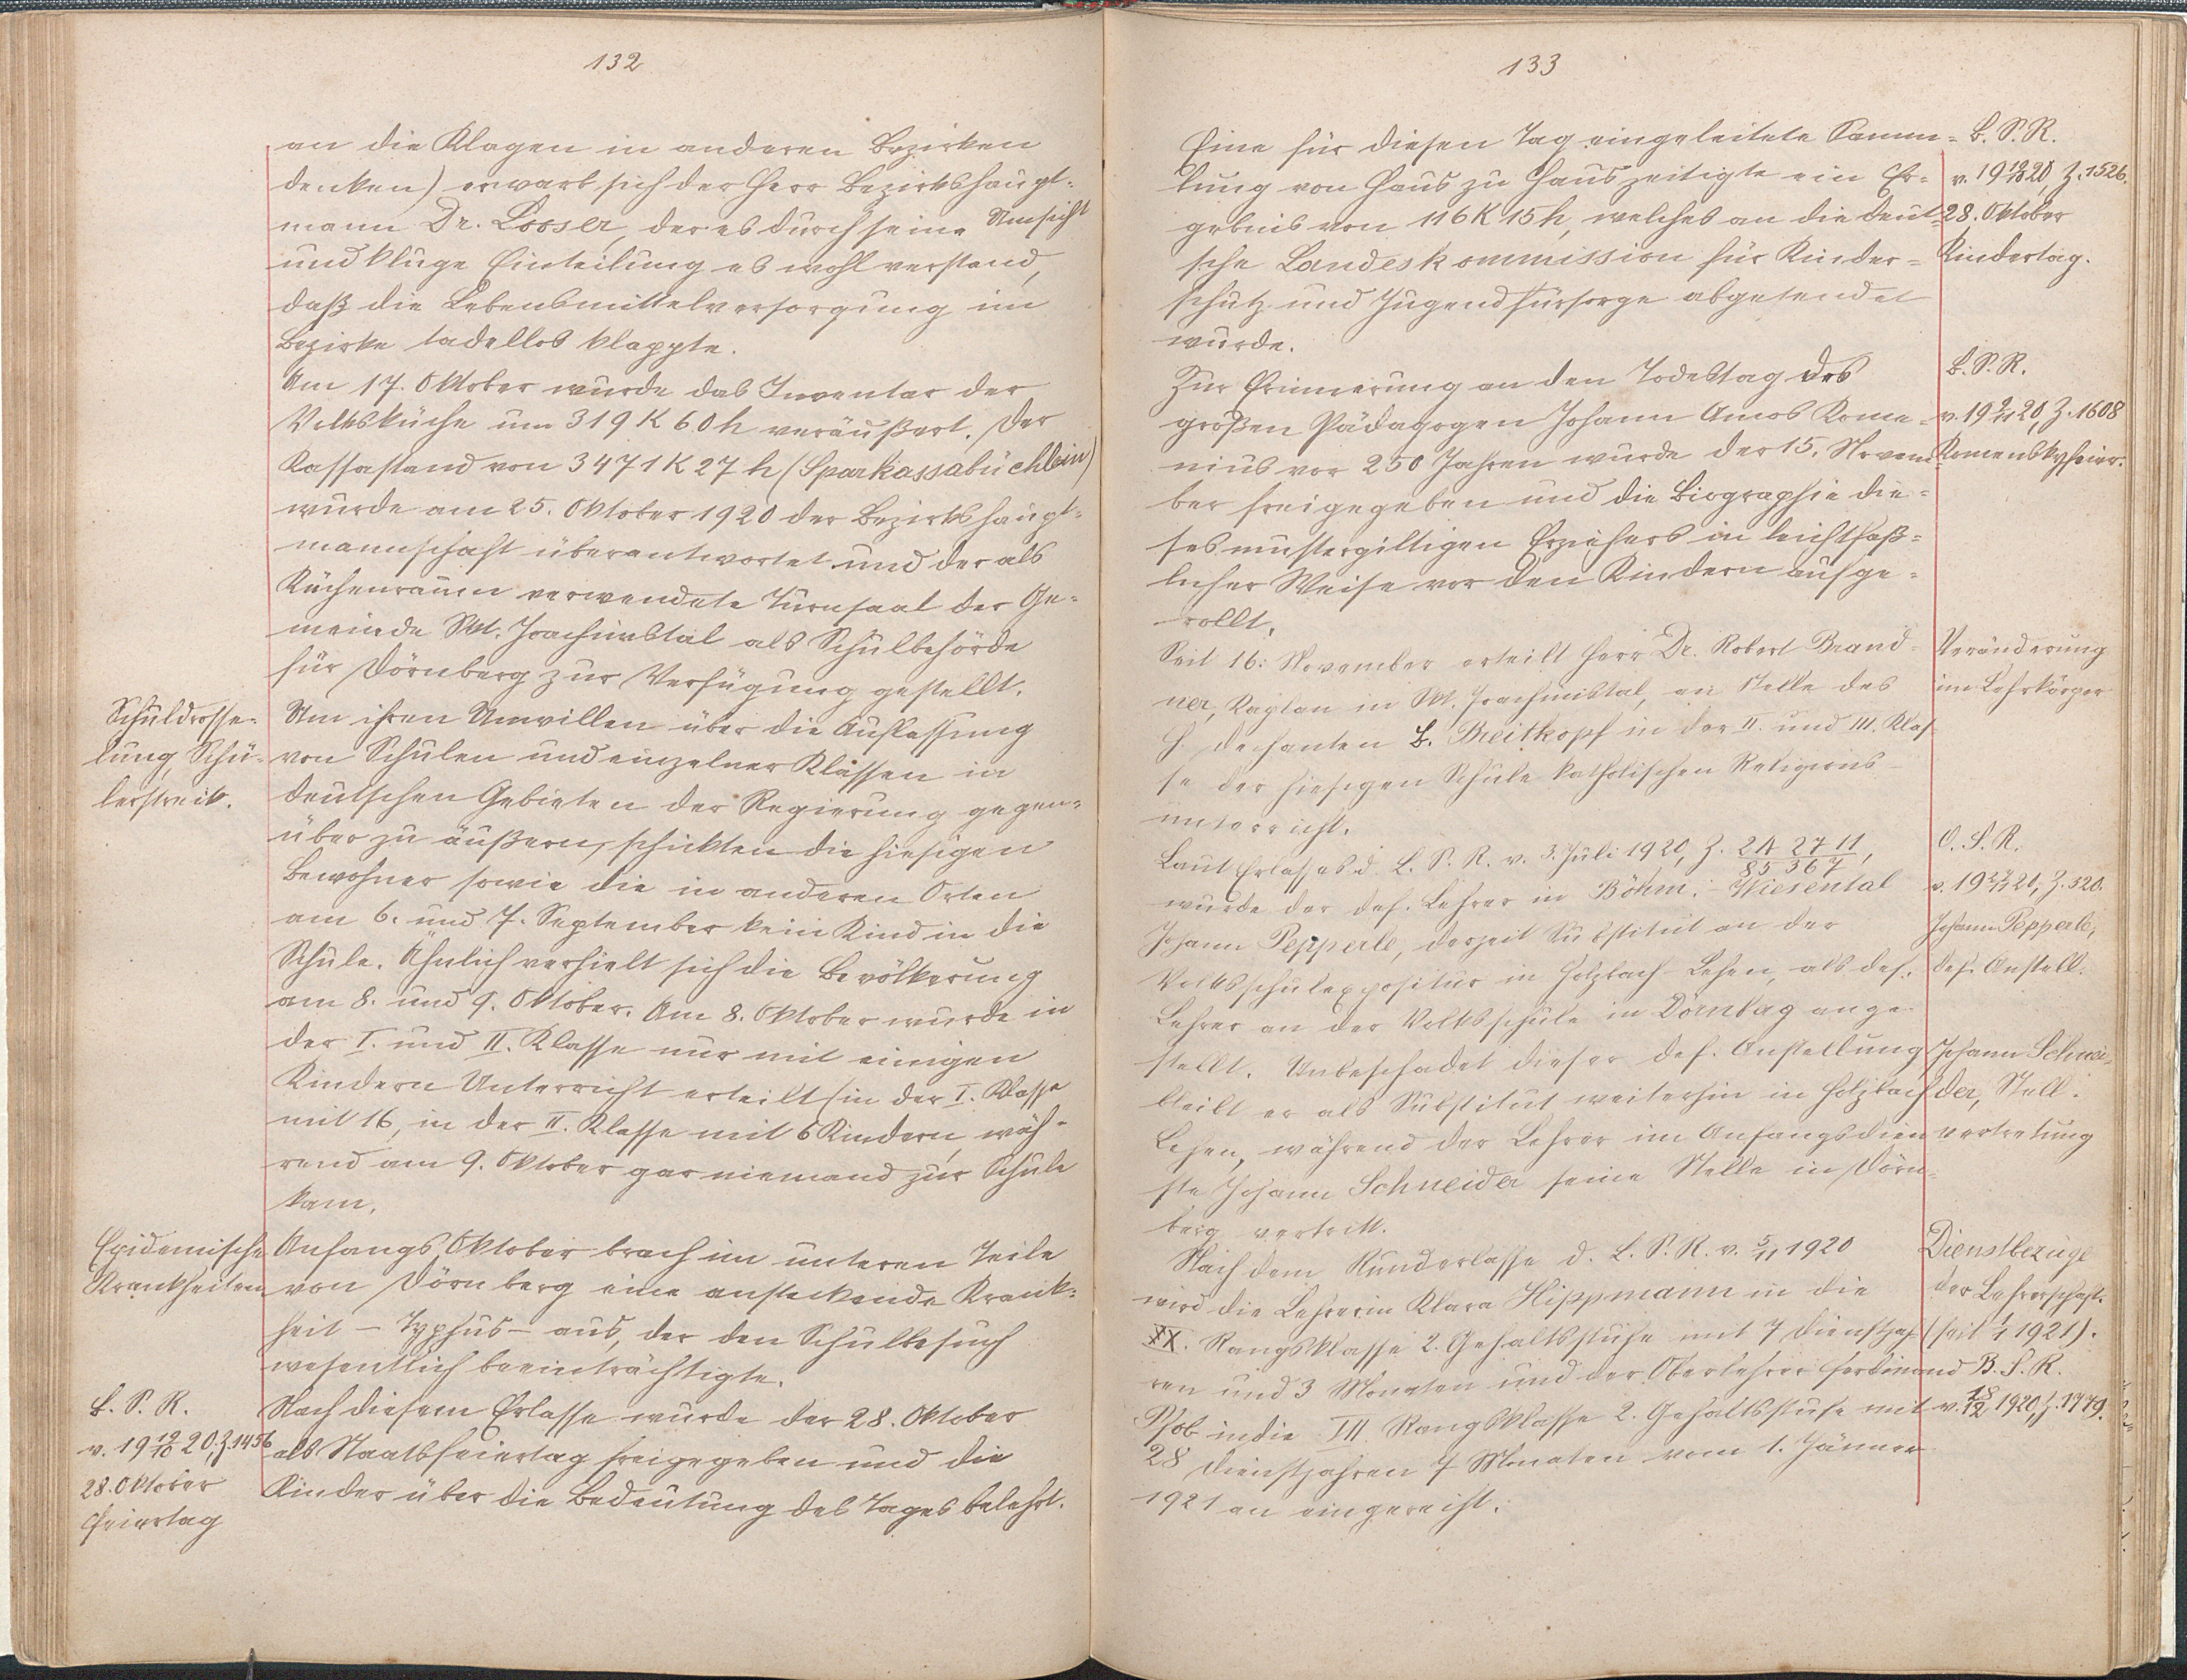 132
an die Klagen in anderen Bezirken
denken) erwarb sich der Herr Bezirkshaupt-
mann Dr. Losser, der es durch seine Umsicht
und kluge Einteilung es wohl verstand,
daß die Lebensmittelversorgung im
Bezirke tadellos klappte.
Am 17. Oktober wurde das Inventar der
Volksküche um 319 K 60 h veräußert. Der
Kassastand von 3471 K 27 h (Sparkassabüchlein)
wurde am 25. Oktober 1920 der Bezirkshaupt-
mannschaft überantwortet und der als
Küchenraum verwendete Turnsaal der Ge-
meinde Skt. Joachimstal als Schulbehörde
für Dörnberg zur Verfügung gestellt.
Schuldrosse-
lung, Schü-
lerstreik.
Um ihren Unwillen über die Auflassung
von Schulen und einzelner Klassen in
deutschen Gebieten der Regierung gegen-
über zu äußern, schickten die hiesigen
Bewohner sowie die in anderen Orten
am 6. und 7. September kein Kind in die
Schule. Ähnlich verhielt sich die Bevölkerung
am 8. und 9. Oktober. Am 8. Oktober wurde in
der I. und II. Klasse nur mit einigen
Kindern Unterricht erteilt (in der I. Klasse
mit 16, in der II. Klasse mit 6 Kindern, wäh-
rend am 9. Oktober gar niemand zur Schule
kam.
Epidemische
Krankheiten
Anfangs Oktober brach im unteren Teile
von Dörnberg eine ansteckende Krank-
heit - Typhus - aus, der den Schulbesuch
wesentlich beeinträchtigte.
B. S. R.
v. 19 12/10 20, Z. 1456
28. Oktober
Feiertag
Nach diesem Erlasse wurde der 28. Oktober
als Staatsfeiertag freigegeben und die
Kinder über die Bedeutung des Tages belehrt.
133
Eine für diesen Tag eingeleitete Samm-
lung von Haus zu Haus zeitigte ein Er-
gebnis von 116 K 15 h, welches an die deut-
sche Landeskommission für Kinder-
schutz und Jugendfürsorge abgesendet
wurde.
B. S. R.
v. 19 20 Z. 1526.
28. Oktober
Kindertag.
Zur Erinnerung an den Todestag des
großen Pädagogen Johann Amos Kome-
nius vor 250 Jahren wurde der 15. Novem-
ber freigegeben und die Biographie die-
ses mustergiltigen Erziehers in leichtfaß-
licher Weise vor den Kindern aufge-
rollt.
B. S. R.
v. 19 9/11 20, Z. 1608
Komenskyfeier.
Seit 16. November erteilt Herr Dr. Robert Brand-
ner, Kaplan in Skt. Joachimstal, an Stelle des
H. Dechanten B. Breitkopf in der II. und III. Klas-
se der hiesigen Schule katholischen Religions-
unterricht.
Veränderung
im Lehrkörper
Laut Erlasses d. L. S. R. v. 3. Juli 1920, Z. 2A 2711/85367,
wurde der def. Lehrer in Böhm.-Wiesental
Johann Pepperle, derzeit Substitut an der
Volksschulexpositur in Holzbach-Lehen, als def.
Lehrer an der Volksschule in Dörnberg ange-
stellt. Unbeschadet dieser def. Anstellung
bleibt er als Substitut weiterhin in Holzbach
Lehen, während der Lehrer im Anfangsdien-
ste Johann Schneider seine Stelle in Dörn-
berg vertritt.
O. S. R.
v. 19 20, Z. 320.
Johann Pepperle,
def. Anstell.
Johann Schnei-
der, Stell.
vertretung
Nach dem Runderlasse d. L. S. R. v. 5/11 1920
wird die Lehrerin Klara Hippmann in die
XX. Rangsklasse 2. Gehaltsstufe mit 7 Dienstjah-
ren und 3 Monaten und der Oberlehrer Ferdinand
in die VII. Rangsklasse 2. Gehaltsstufe mit
28 Dienstjahren 7 Monaten vom 1. Jänner
1921 an eingereiht.
Dienstbezüge
der Lehrerschaft.
(seit 1/1 1921).
B. S. R.
v. 18/12 1920, Z. 1779.